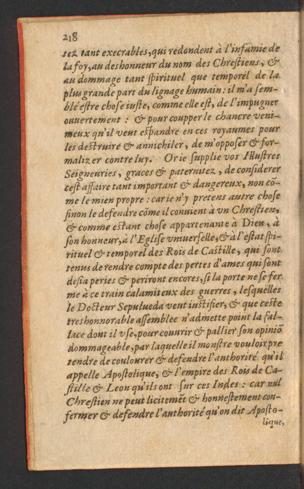 218
sez tant execrables, qui redondent à l'infamie de
la foy, au deshonneur du nom des Chrestiens, &
au dommage tant spirituel que temporel de la
plus grande part du lignage humain: il m'a sem-
blé estre chose iuste, comme elle est, de l'impugner
ouvertement: & pour coupper le chancre veni-
meux qu'il veut espandre en ces royaumes pour
les destruire & annichiler, de m'opposer & for-
malizer contre luy. Or ie supplie voz Illustres
Seigneuries, graces & paternitez, de considerer
cest affaire tant important & dangereux, non cõ-
me le mien propre: car ie n'y pretens autre chose
sinon le defendre cõme il convient à un Chrestien,
& comme estant chose appartenante à Dieu, à
son honneur, à l'Eglise vniuerselle, & à l'estat spi-
rituel & temporel des Rois de Castille, qui sont
tenus de rendre compte des pertes d'ames qui sont
desia peries & periront encores, si la porte ne se fer
me à ce train calamiteux des guerres, lesquelles
le Docteur Sepulueda veut iustifier, & que ceste
treshonnorable assemblee n'admette point la fal-
lace dont il vse, pour couurir & pallier son opiniõ
dommageable, par laquelle il monstre vouloir pre
tendre de coulourer & defendre l'authorité qu'il
appelle Apostolique, & l'empire des Rois de Ca-
stille & Leon qu'ils ont sur ces Indes: car nul
Chrestien ne peut licitemẽt & honnestement con-
fermer & defendre l'authorité qu'on dit Aposto-
lique,